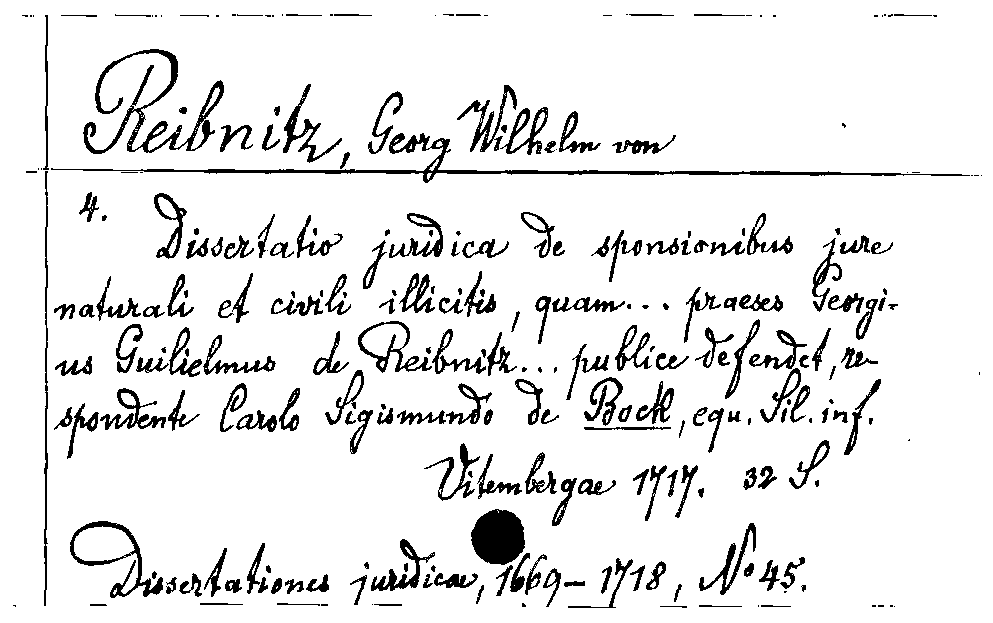 Reibnitz, Georg Wilhelm von
4.
Dissertatio juridica de sponsionibus jure
naturali et civili illicitis, quam... praeses Georgi-
us Guilielmus de Reibnitz... publice defendet, re-
spondente Carolo Sigismundo de Bock, equ. Sil. inf.
Vitembergae 1717. 32 S.
Dissertationes juridicae, 1669-1718, No 45.